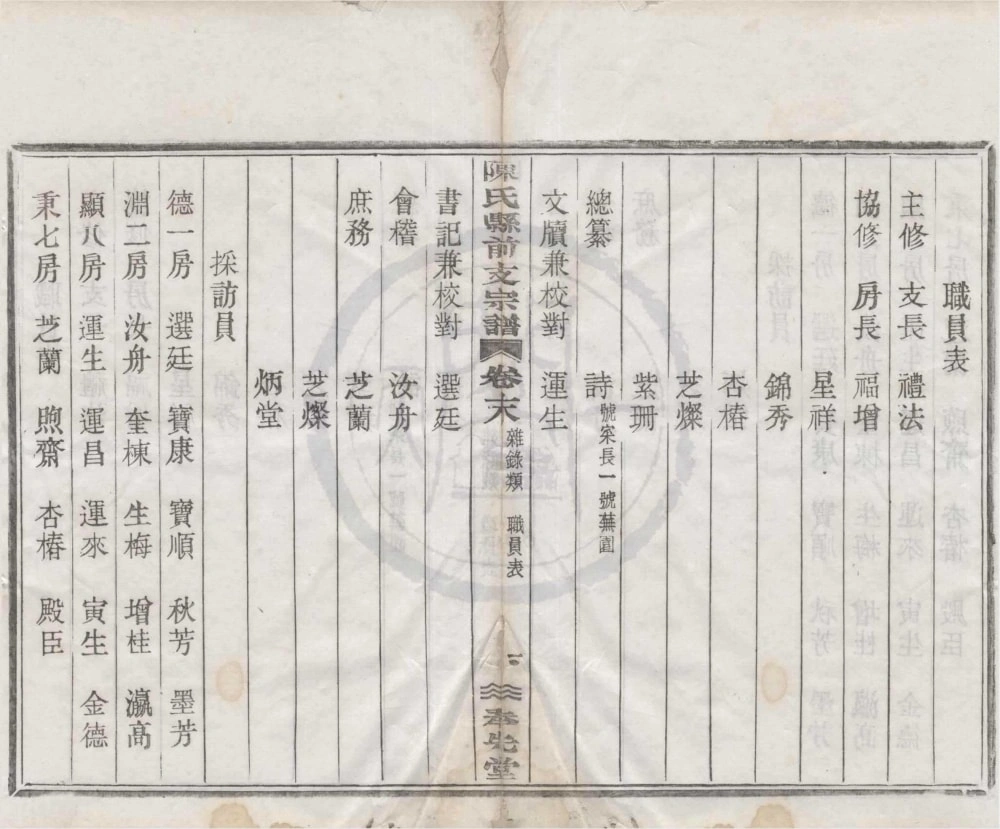 職員表
主修支長 禮法
協修房長 福增
星祥
錦秀
杏椿
芝燦
紫珊
總纂 詩 號寀長一號蕪園
文牘兼校對 運生
陳氏縣前支宗譜 卷末 雜錄類 職員表 一 奉先堂
書記兼校對 選廷
會稽 汝舟
庶務 芝蘭
芝燦
炳堂
採訪員
德一房 選廷 寶康 寶順 秋芳 墨芳
淵二房 汝舟 奎棟 生梅 增桂 瀛高
顯八房 運生 運昌 運來 寅生 金德
秉七房 芝蘭 煦齋 杏椿 殿臣